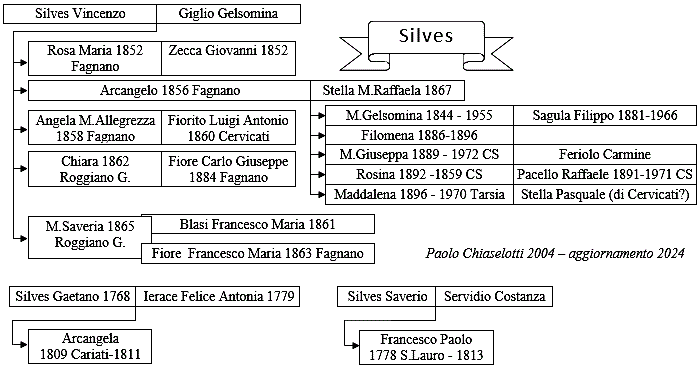 Silves Vincenzo Giglio Gelsomina
Silves
Rosa Maria 1852
Fagnano
Zecca Giovanni 1852
Arcangelo 1856 Fagnano Stella M.Raffaela 1867
Angela M.Allegrezza
1858 Fagnano
Fiorito Luigi Antonio
1860 Cervicati
M.Gelsomina 1844 - 1955 Sagula Filippo 1881-1966
Filomena 1886-1896
Chiara 1862
Roggiano G.
Fiore Carlo Giuseppe
1884 Fagnano
M.Giuseppa 1889 - 1972 CS Feriolo Carmine
Rosina 1892 -1859 CS Pacello Raffaele 1891-1971 CS
Maddalena 1896 - 1970 Tarsia Stella Pasquale (di Cervicati?)
M.Saveria 1865
Roggiano G.
Blasi Francesco Maria 1861
Fiore Francesco Maria 1863 Fagnano
Paolo Chiaselotti 2004 – aggiornamento 2024
Silves Gaetano 1768 Ierace Felice Antonia 1779
Arcangela
1809 Cariati-1811
Silves Saverio Servidio Costanza
Francesco Paolo
1778 S.Lauro - 1813